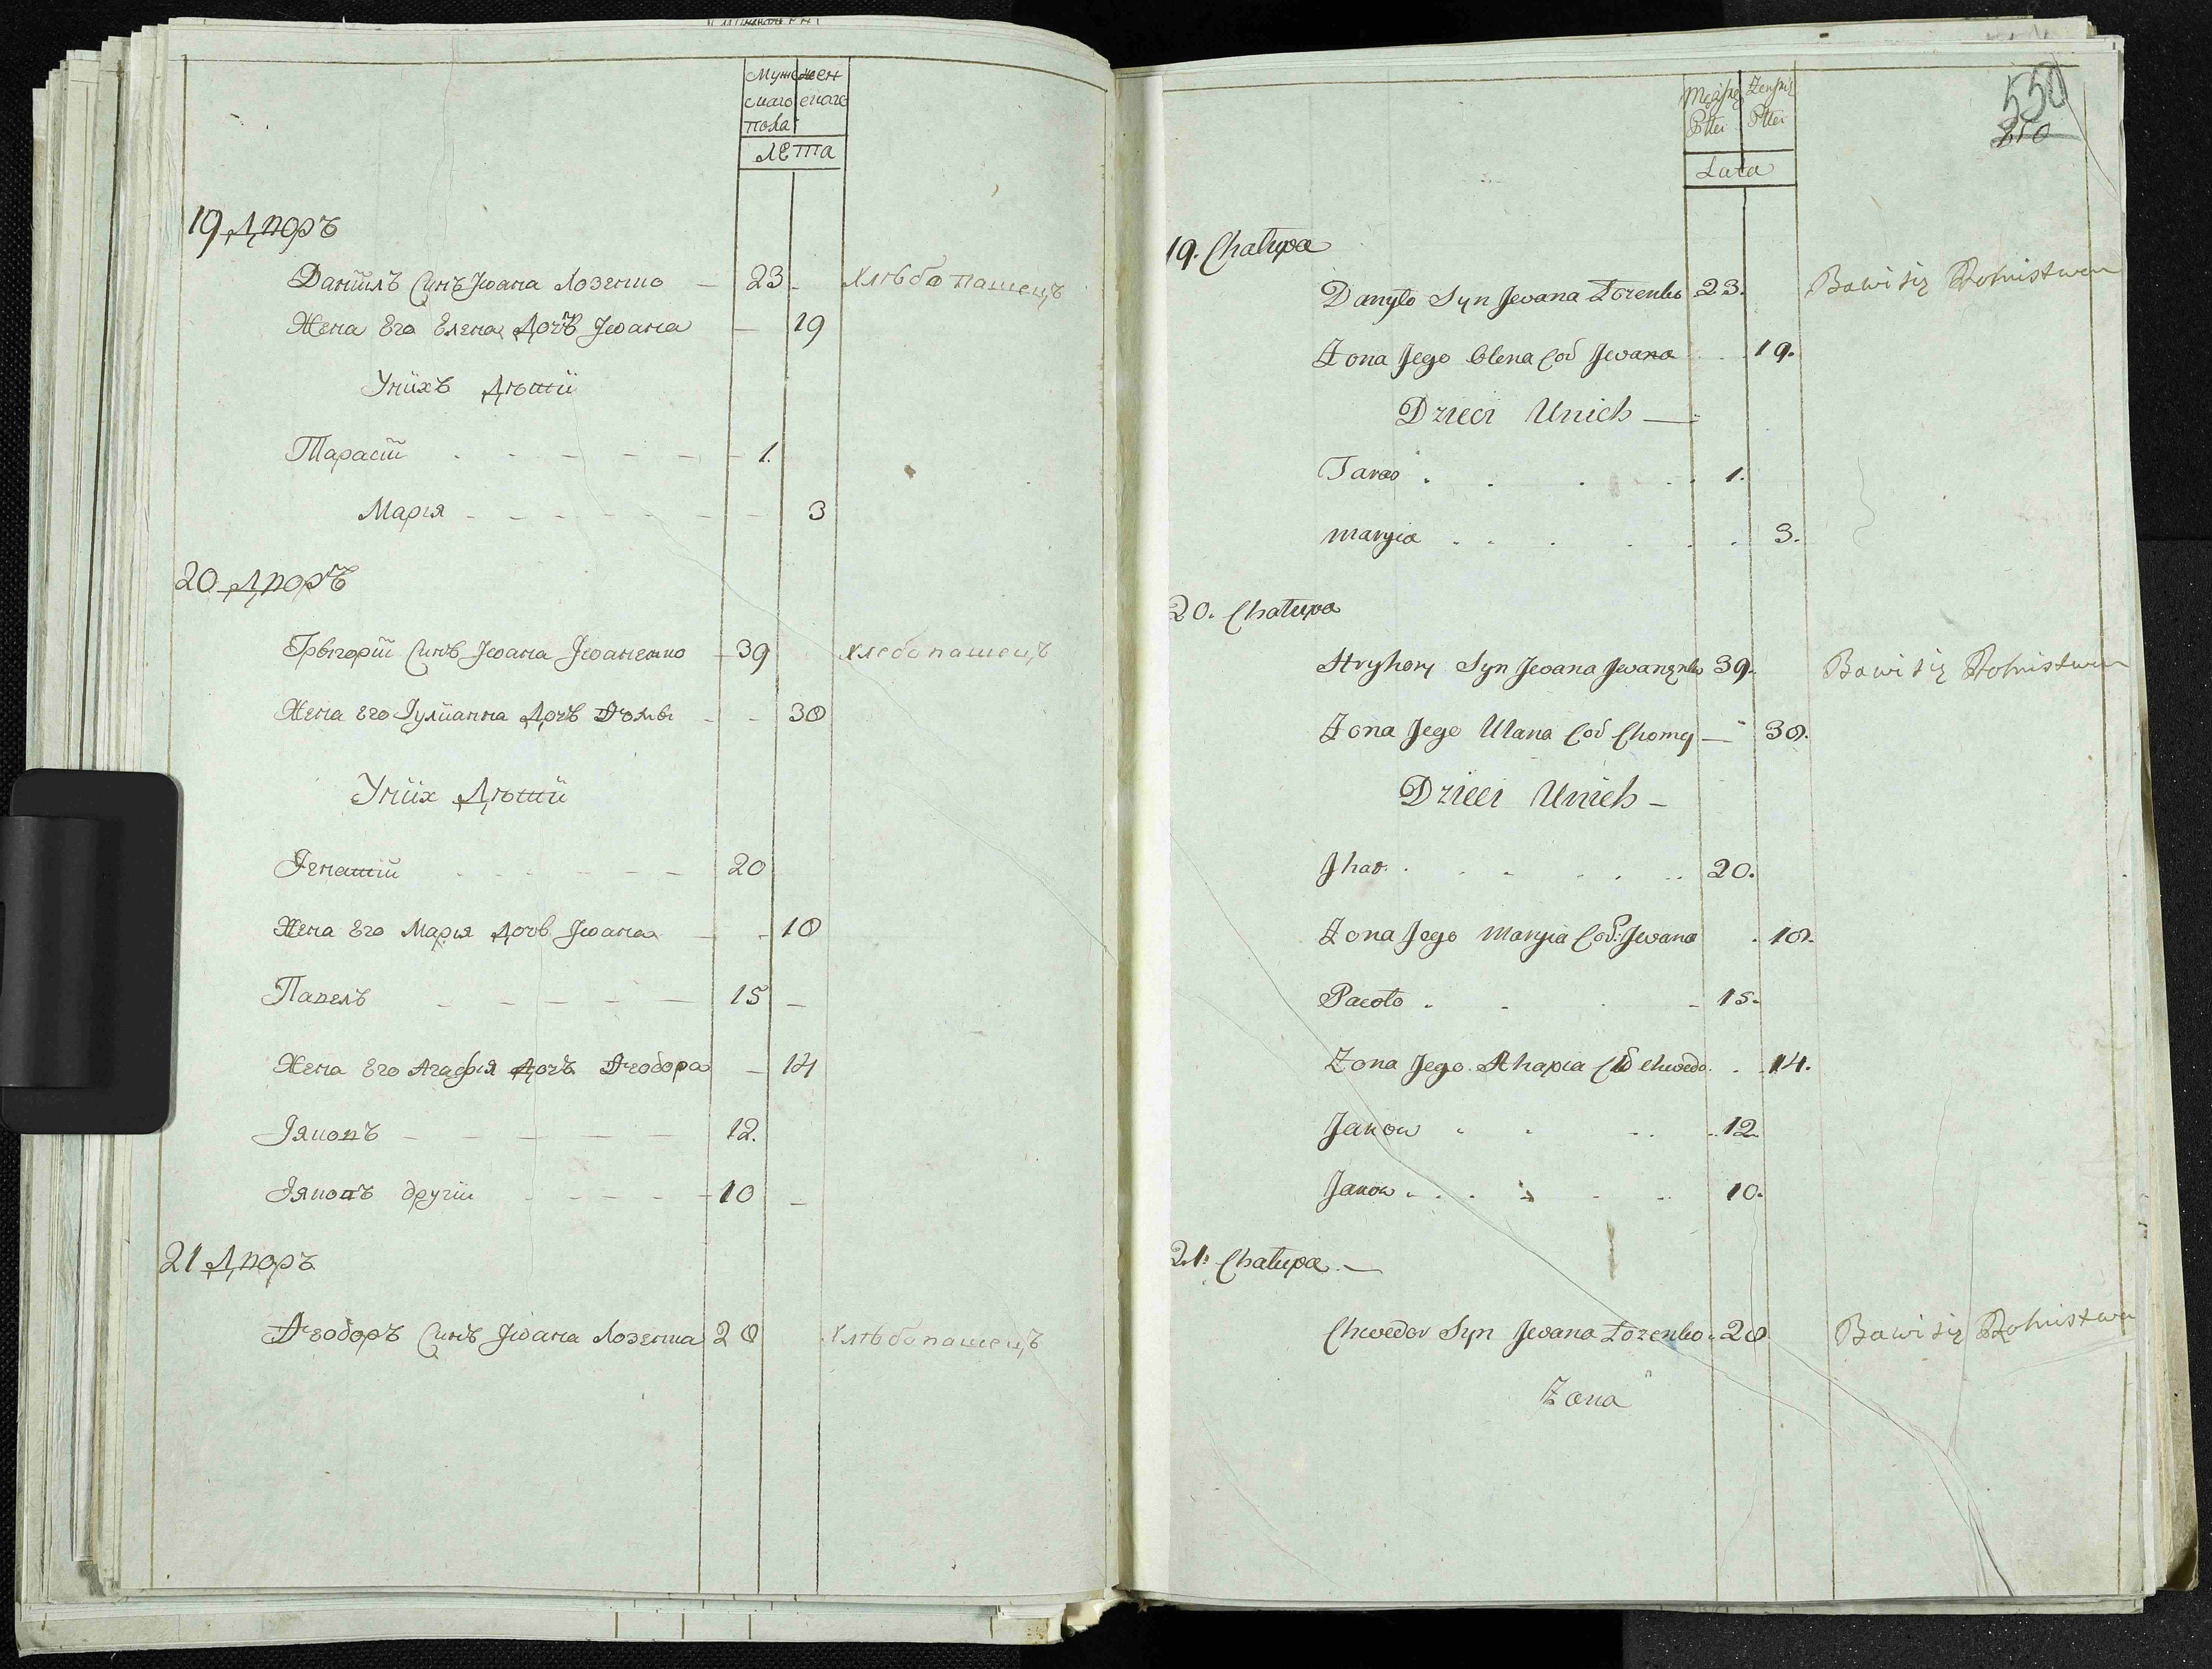 Муже жен
скаго скаго
пола
лета
19 Дворъ
Даніилъ Синъ Іоана Лозенко — 23 — Хлѣбопашецъ
Жена Его Елена Дочъ Іоана — 19
Унiихъ Дѣтіи
Тарасій 1.
Марія 3
20 Дворъ
Грыгорій Синъ Іоана Іоаненко 39 Хлебопашецъ
Жена Его Іуліанна Дочъ Фомы 38
Унiих Дѣтіи
Ігнатій 20
Жена Его Марія Дочь Іоана 18
Павелъ 15 —
Жена Его Агафія Дочъ Феодора — 14
Іяковъ 12.
Іяковъ другій 10 —
21 Дворъ
Феодоръ Синъ Іоана Лозенка 28 Хлѣбопашецъ
550
210
Męzkiey Żenskiey
Płłci Płłci
Lata
19. Chałupa
Danyło Syn Jwana Łozenko 23. Bawi się Rolnistwem
Żona Jego Olena Cod Jwana 19.
Dzieci Unich —
Taras 1.
Maryia 3.
20. Chałupa
Hryhory Syn Jwana Jwanęnko 39. Bawi się Rolnistwem
Żona Jego Ulana Cod Chomy — 38.
Dzieci Unich —
Jhat. 20.
Żona Jego Maryia Cod: Jwana 18.
Pawło 15.
Żona Jego Ahapia Cod Chwedo. 14.
Jakow 12
Jakow 10.
21. Chałupa —
Chwedor Syn Jwana Łozenko 28 Bawi się Rolnistwem
Żona